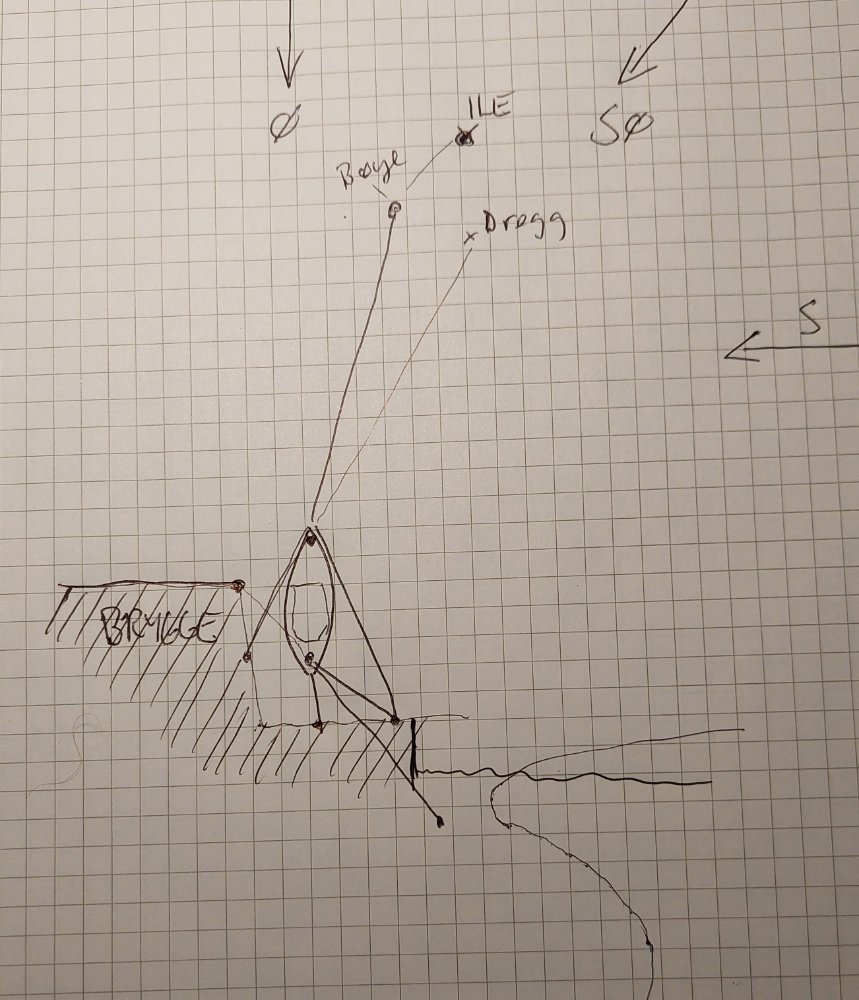 Ø
ILE
SØ
Bøye
Dregg
S
BRYGGE